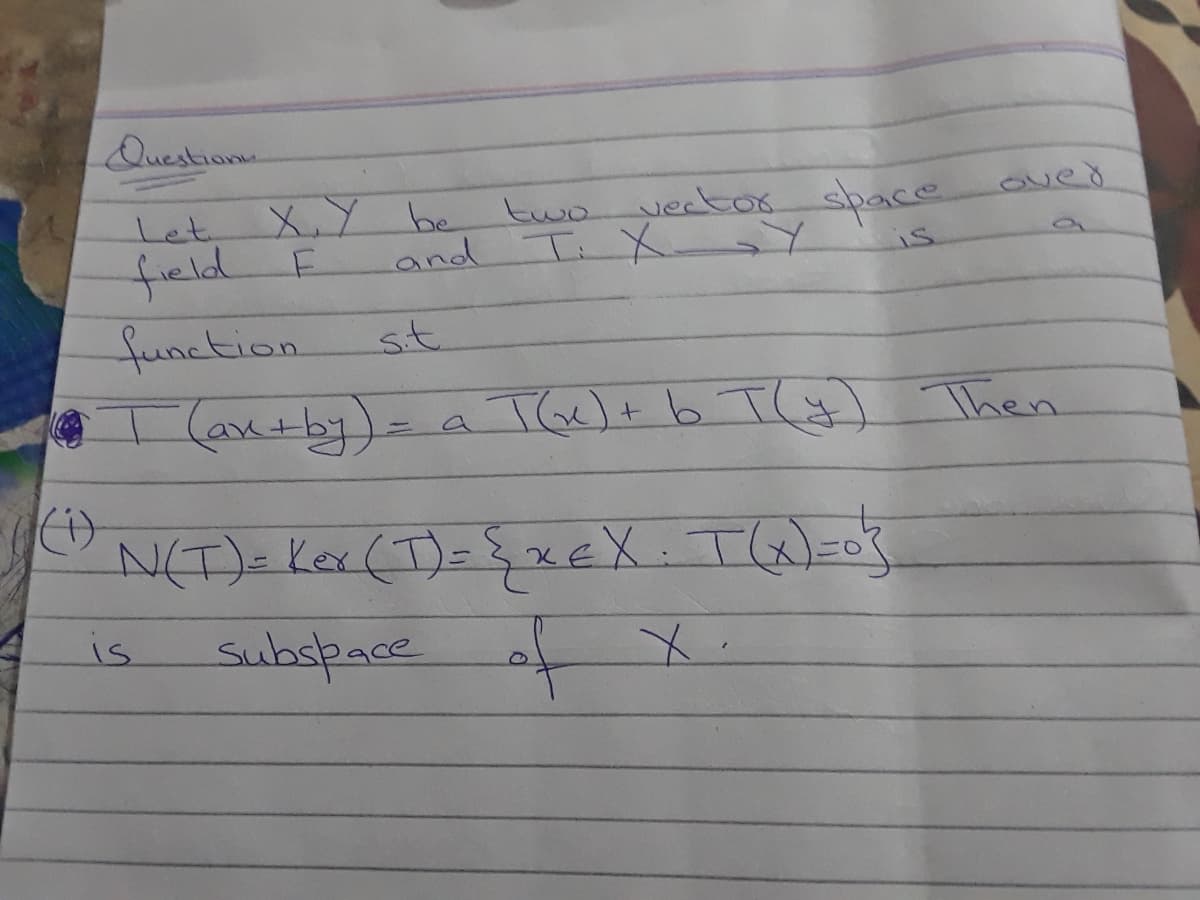 Question
Let X, Y be two vector space over
field F and T: X → Y is a
function s.t
T (ax+by) = a T(x) + b T(y) Then
(i) N(T) = Ker (T) = {x ∈ X : T(x)=0}
is subspace of X.